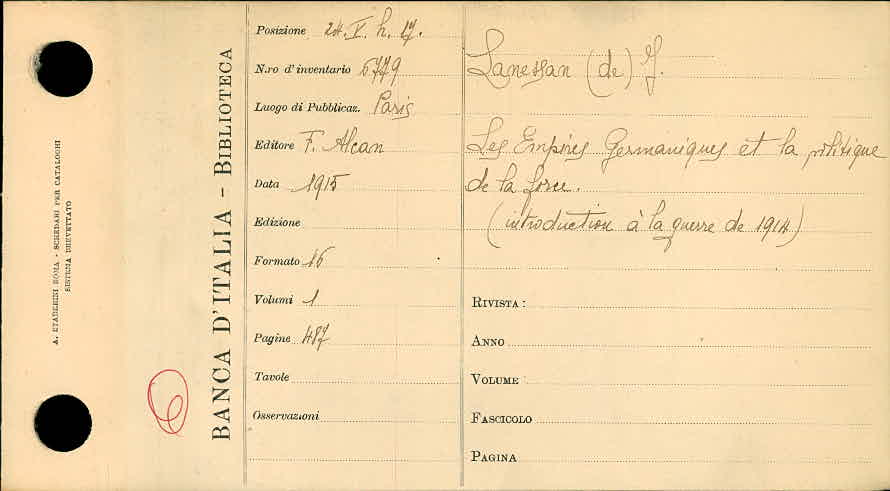 A. STADERINI ROMA - SCHEDARI PER CATALOGHI
SISTEMA BREVETTATO
BANCA D'ITALIA - BIBLIOTECA
Posizione 24. V. h. 17.
N.ro d'inventario 6779
Luogo di Pubblicaz. Paris
Editore F. Alcan
Data 1915
Edizione
Formato 16
Volumi 1
Pagine 487
Tavole
Osservazioni
Lanessan (de) J.
Les Empires Germaniques et la politique
de la force.
(introduction à la guerre de 1914)
RIVISTA:
ANNO
VOLUME
FASCICOLO
PAGINA